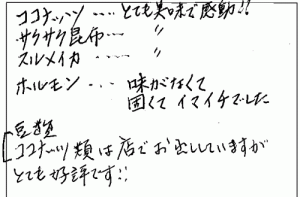 ココナッツ ・・・・ とても美味で感動!!
サクサク昆布・・・ 〃
スルメイカ ・・・・ 〃
ホルモン ・・・ 味がなくて
固くて イマイチでした
豆類
ココナッツ類は店でお出ししていますが
とても好評です!!